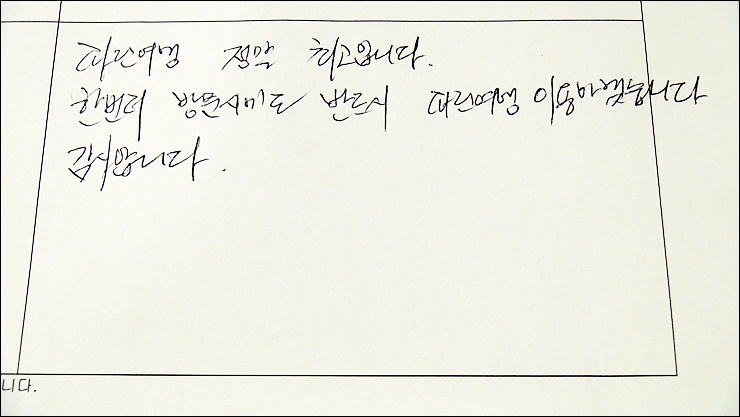 파란여행 정말 최고입니다.
한번더 방문시에도 반드시 파란여행 이용하겠습니다
감사합니다.
니다.